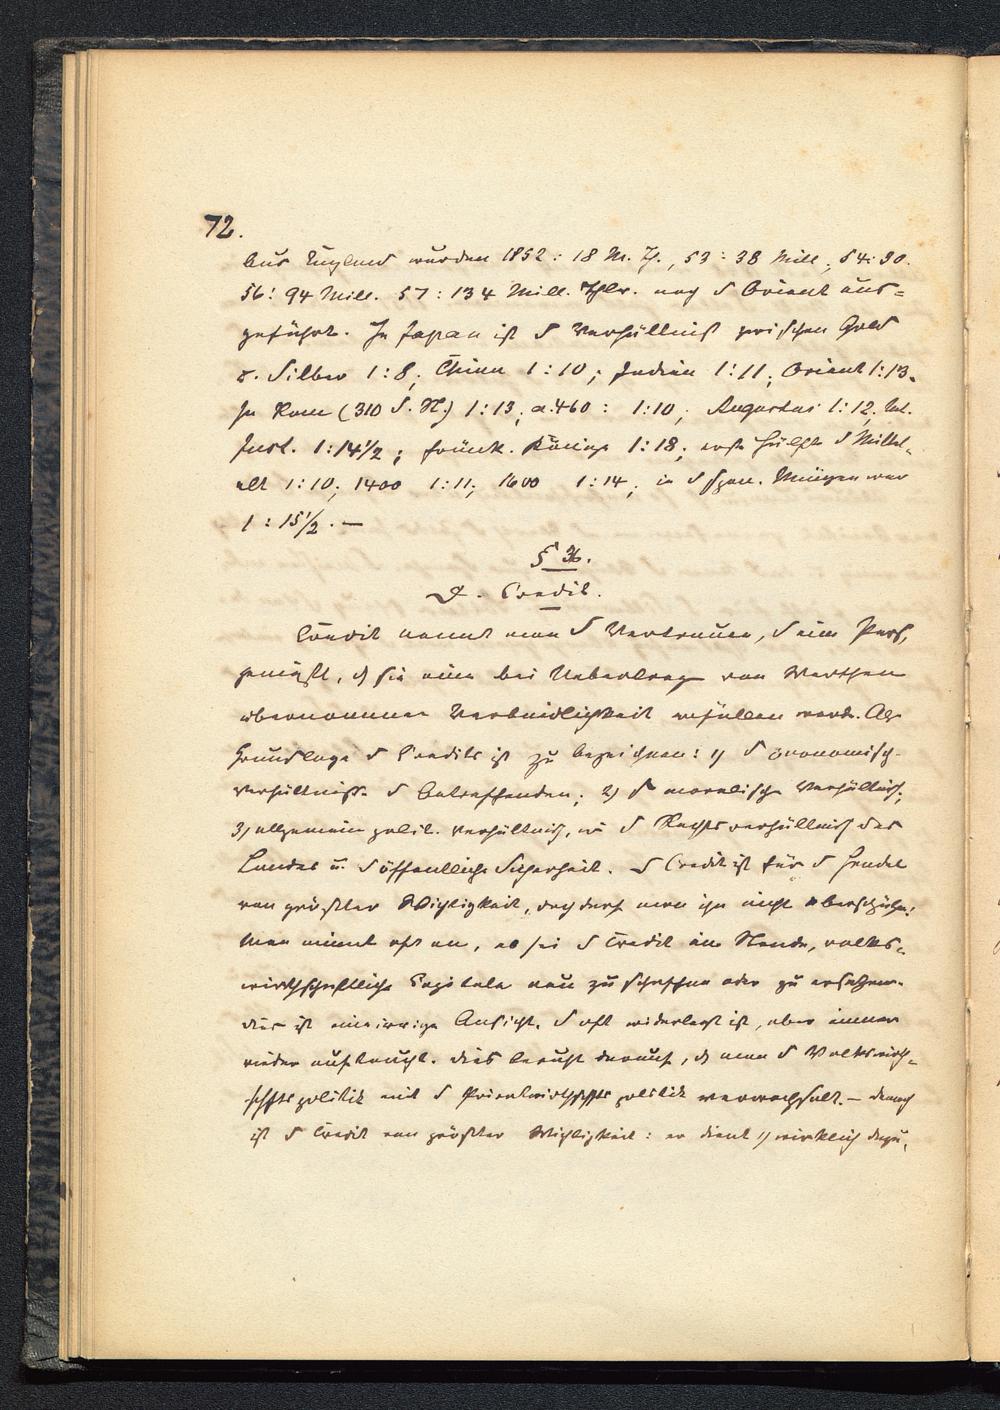 72.
Aus England wurden 1852: 18 M. Th., 53: 38 Mill., 54: 30.
56: 94 Mill. 57: 134 Mill. Thlr. nach d Orient aus=
geführt. In Japan ist d Verhältniß zwischen Gold
u. Silber 1:8; China 1:10; Indien 1:11; Orient 1:13.
In Rom (310 d. St.) 1:13; a. 460: 1:10; Augustus 1:12;
Just. 1:14 1/2; fränk. Könige 1:18; erste Hälfte d Mittel=
alt 1:10; 1400 1:11; 1600 1:14; in d span. Münzen war
1:15 1/2. —
§ 36.
D. Credit.
Credit nennt man d Vertrauen, d eine Pers,
genießt, d sie eine bei Uebertrag von Werthen
übernommene Verbindlichkeit erfüllen werde. Als
Grundlage d Credits ist zu bezeichnen: 1) d öconomisch.
Verhältniß d Betreffenden; 2) d moralische Verhältniß;
3) allgemein polit. Verhältniß, wie d Rechtsverhältniß des
Landes u. d öffentliche Sicherheit. d Credit ist für d Handel
von größter Wichtigkeit, doch darf man ihn nicht überschätzen.
Man nimmt oft an, es sei d Credit im Stande, volks=
wirthschaftliche Capitale neu zu schaffen oder zu ersetzen.
dies ist eine irrige Ansicht, d oft widerlegt ist, aber immer
wieder auftaucht. dies beruht darauf, d man d Volkswirth=
schftspolitik mit d Privatwirthschftspolitik verwechselt. — dennoch
ist d Credit von größter Wichtigkeit: er dient 1) wirklich dazu,